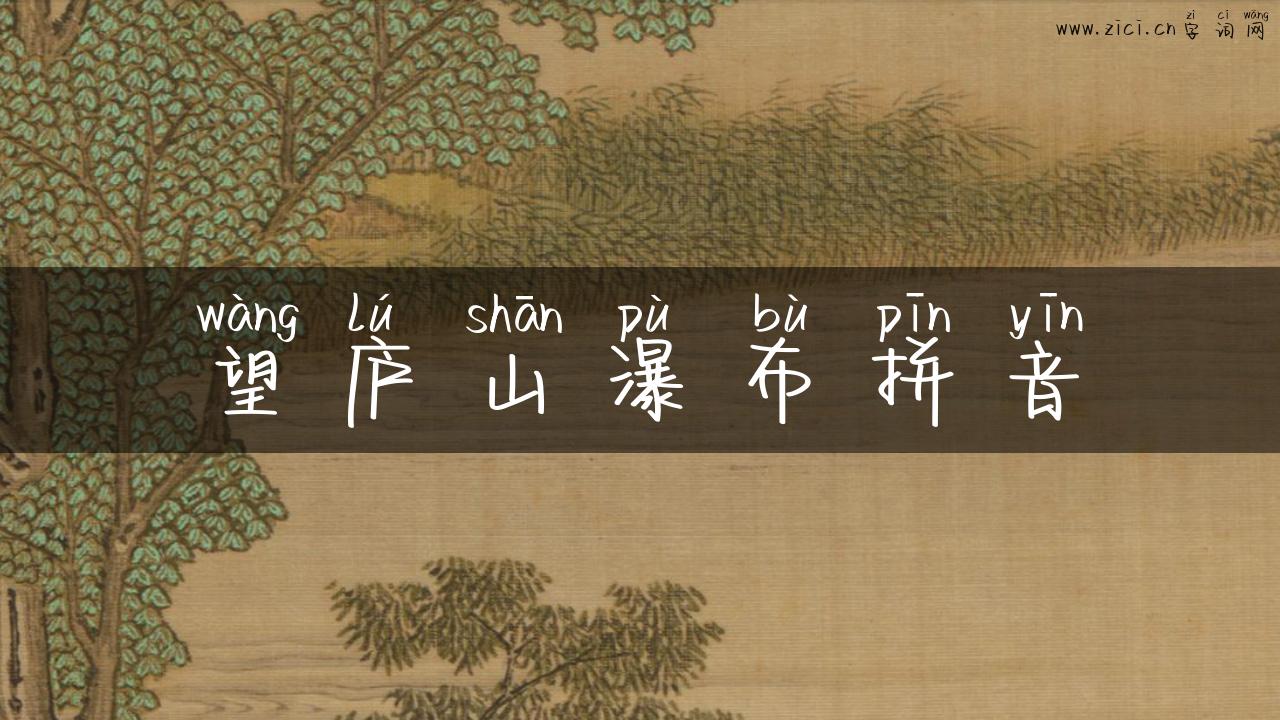 zì cí wǎng
www.zici.cn 字词网
wàng lú shān pù bù pīn yīn
望庐山瀑布拼音